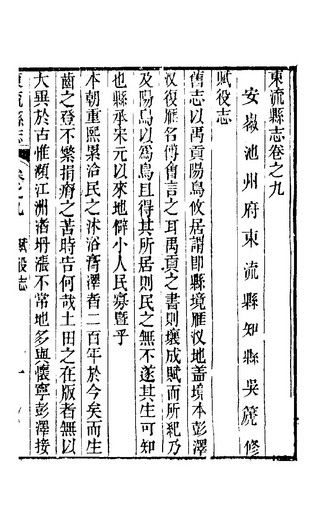 東流縣志卷之九
安徽池州府東流縣知縣吳篪修
賦役志
舊志以禹貢陽鳥攸居謂即縣境雁汊地蓋境本彭澤
汉復雁名傅會言之耳禹貢之書則壤成賦而所紀乃
及陽鳥以為鳥且得其所居則民之無不遂其生可知
也縣承宋元以來地僻小人民寡暨乎
本朝重熙累洽民之沐浴膏澤者二百年於今矣而生
齒之登不繁捐瘠之苦時告何哉土田之在版者無以
大異於古惟瀕江洲渚坍漲不常地多與懷寧彭澤接
東流縣志
卷之九
賦役志
一